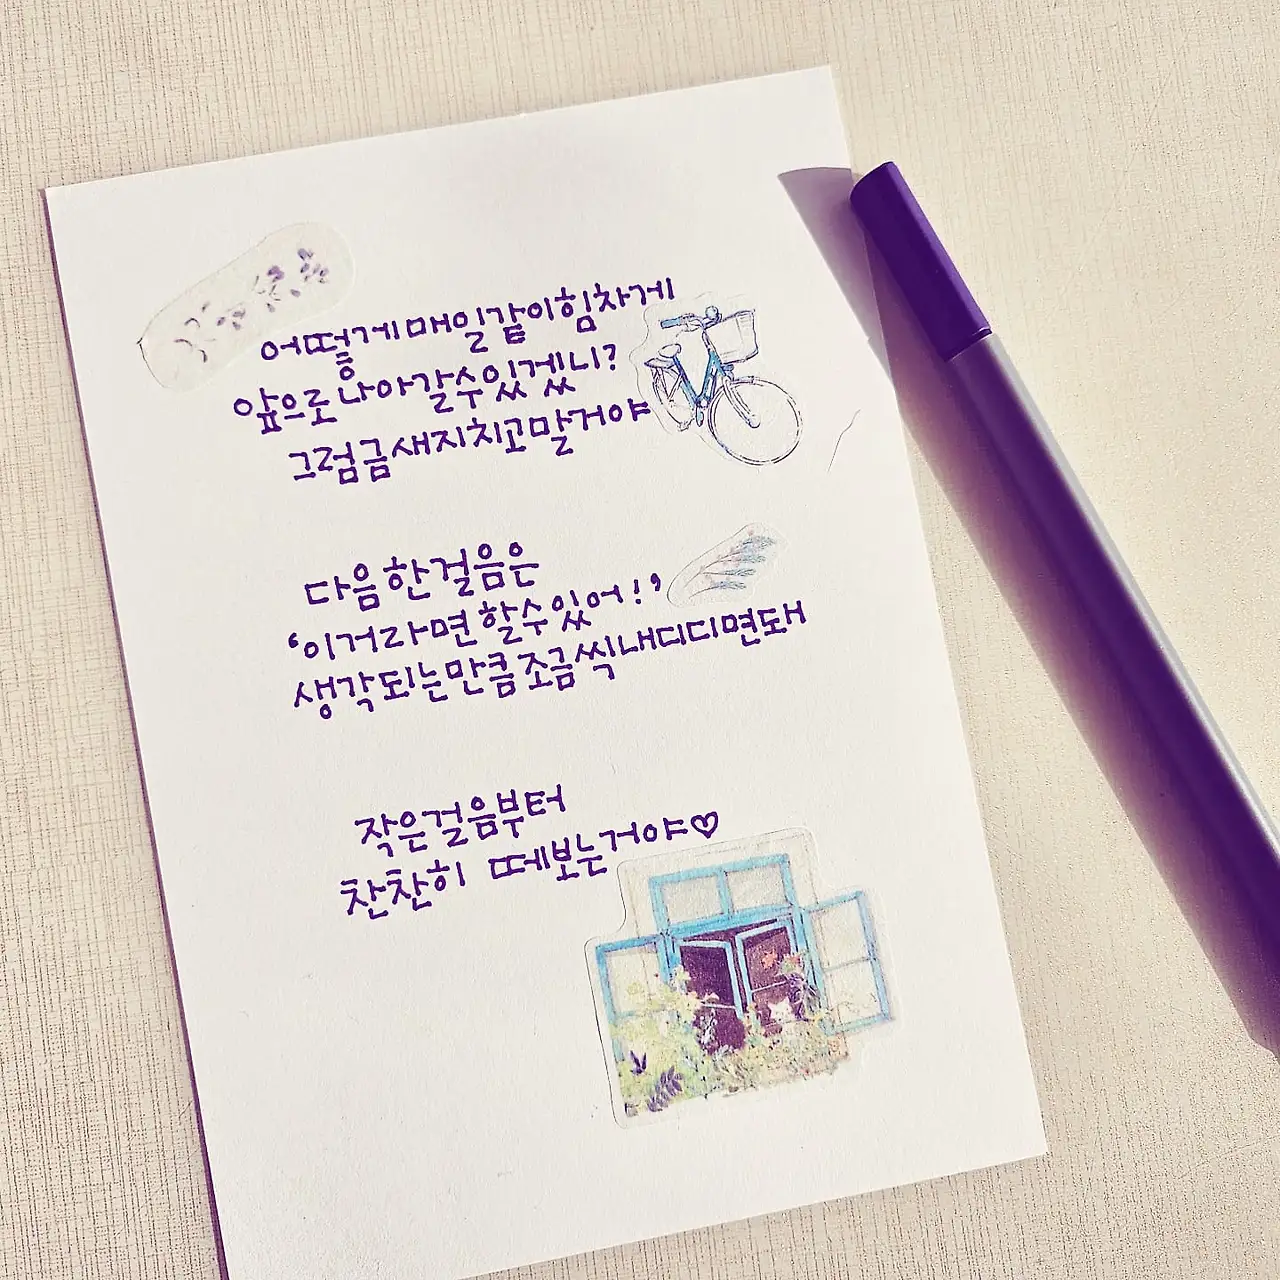 어떻게 매일같이 힘차게
앞으로 나아갈 수 있겠니?
그럼 금새 지치고 말거야
다음 한 걸음은
'이거라면 할 수 있어!'
생각되는만큼 조금씩 내디디면 돼
작은 걸음부터
찬찬히 떼보는거야♡